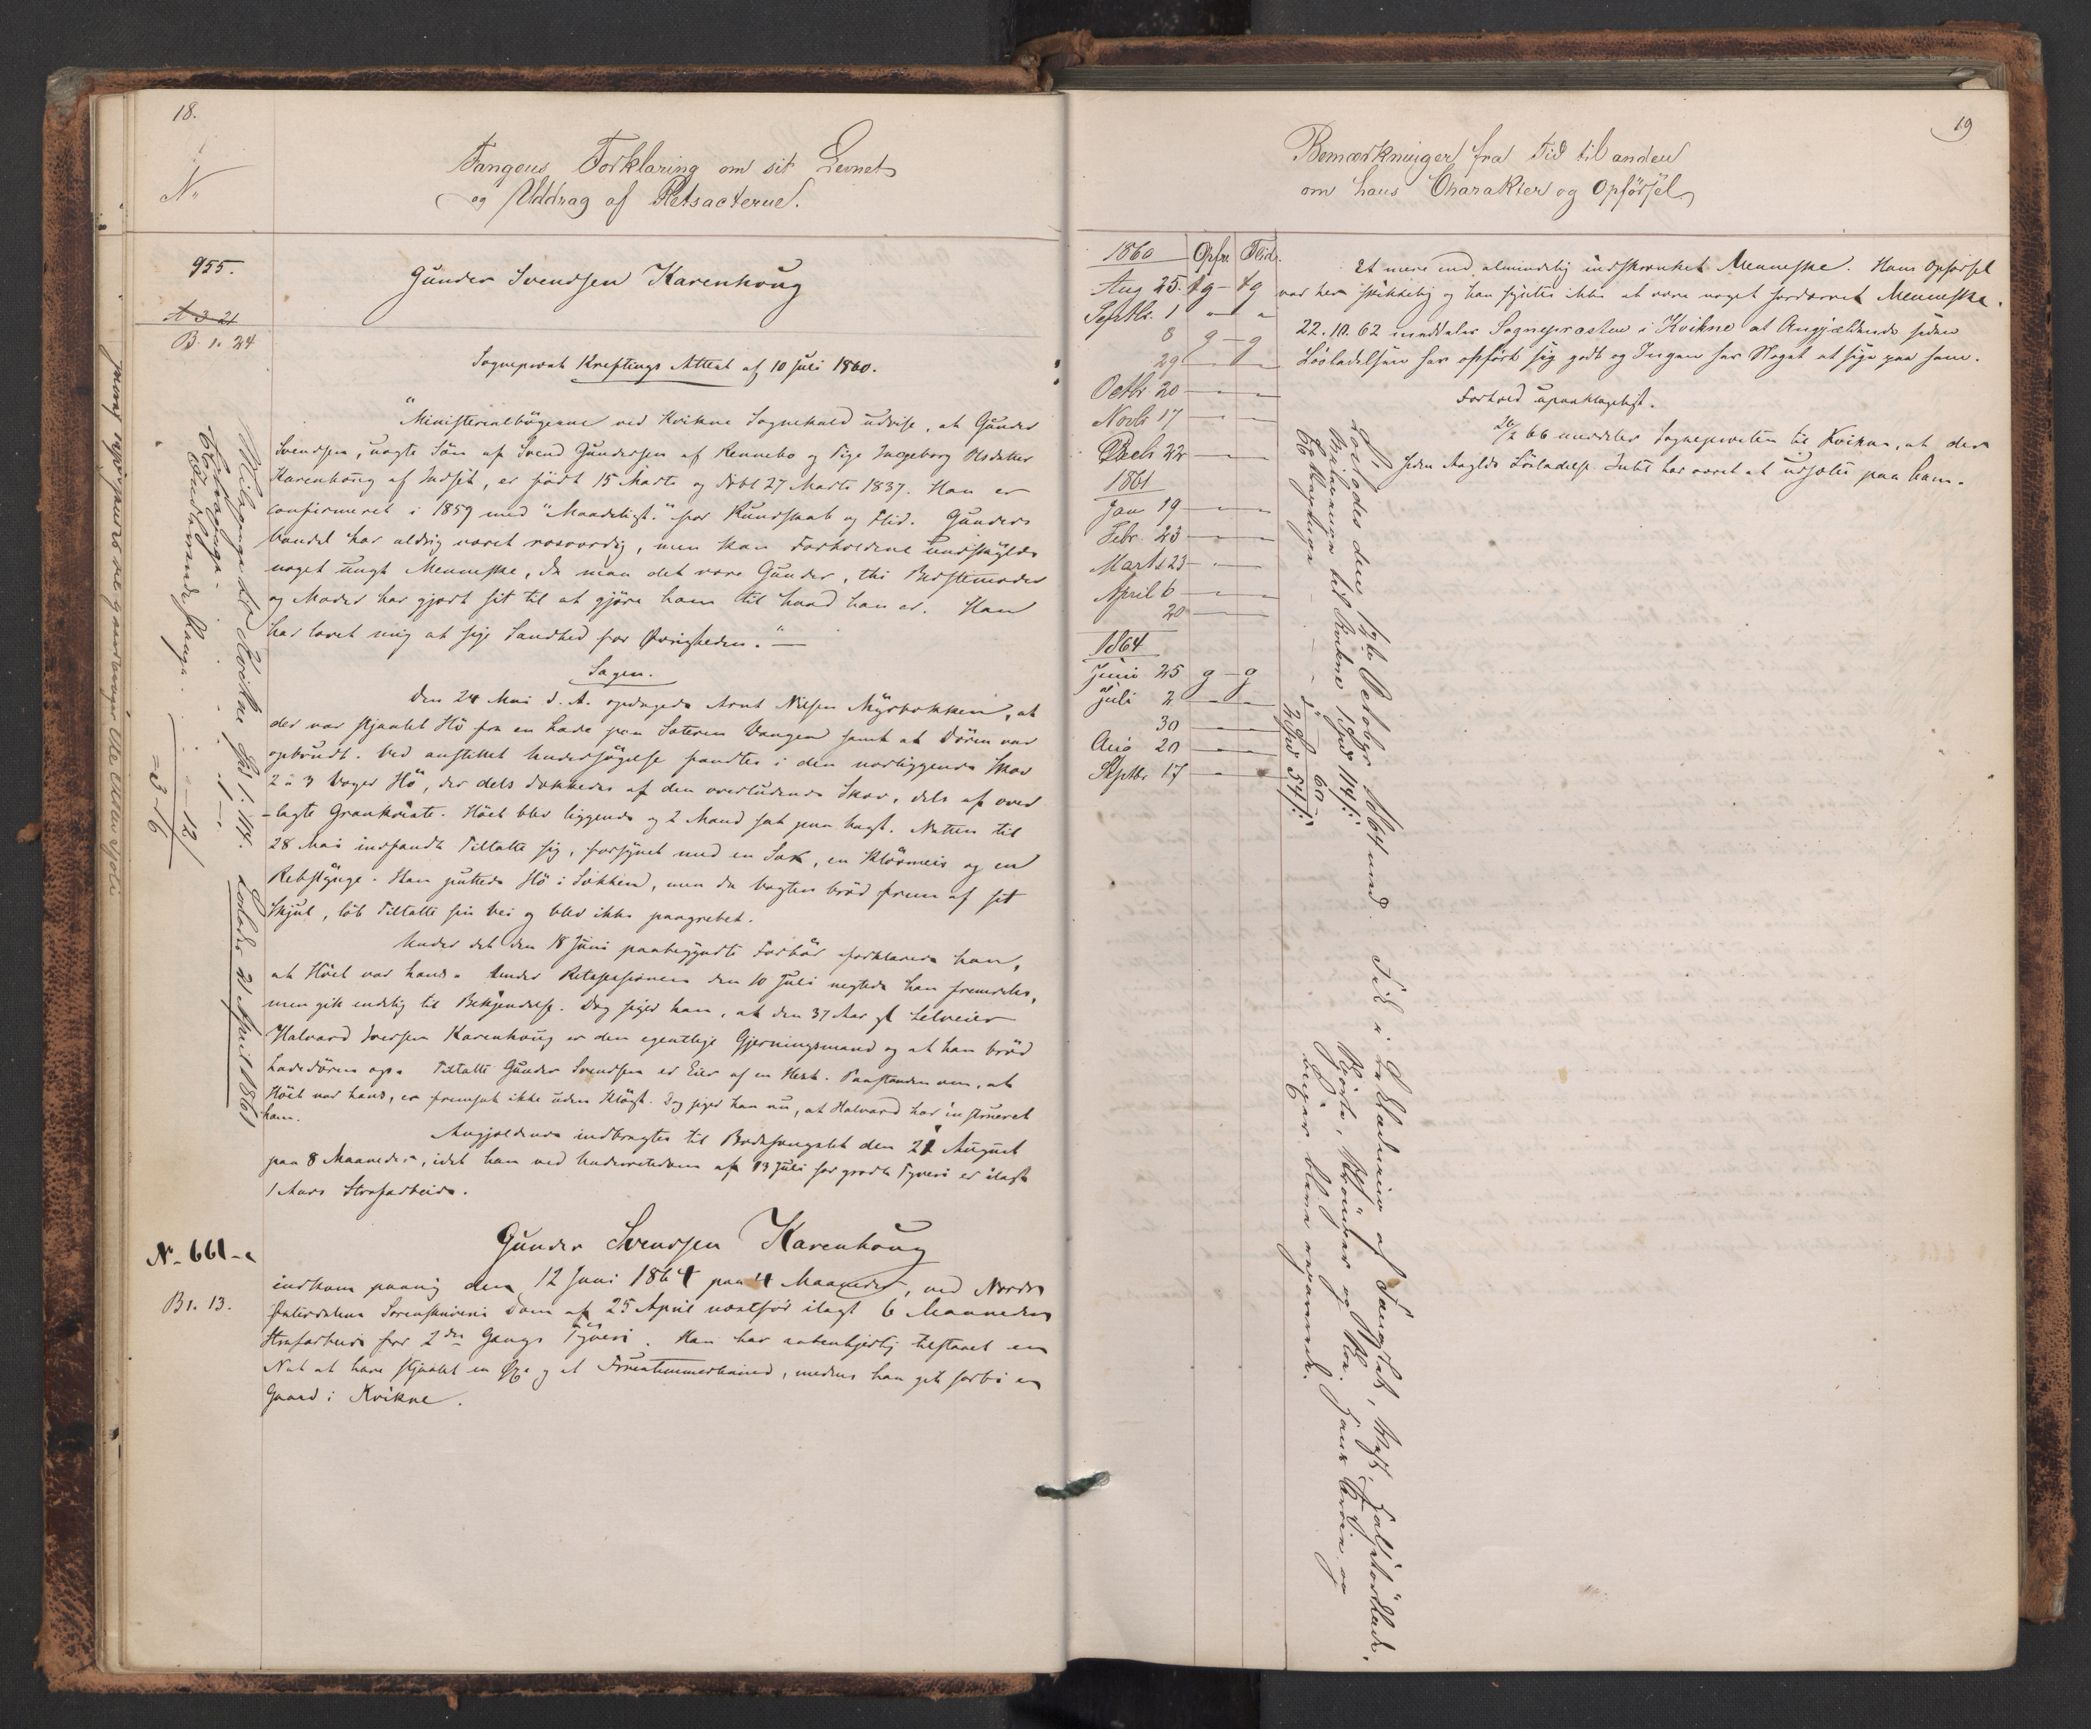 18.
No
Fangens Forklaring om sit Levnet
og Uddrag af Retsacterne.
955.
A 3 21
B. 1. 24
Gunder Svendsen Karenhoug
Sognepræst Kreftings Attest af 10 Juli 1860.
"Ministerialbøgerne ved Kvikne Sognekald udvise, at Gunder
Svendsen, uægte Søn af Svend Gundersen af Rennebo og Pige Ingeborg Olsdatter
Karenhoug af Indset, er født 15 Marts og døbt 27 Marts 1837. Han er
confirmeret i 1859 med "Maadeligt." for Kundskab og Flid. Gunders
Vandel har aldrig været rosværdig, men kan Forholdene undskylde
noget ungt Menneske, da maa det være Gunder, thi Bedstemoder
og Moder har gjort sit til at gjöre ham til hvad han er. Han
har lovet mig at sige Sandhed for Øvrigheden." —
Sagen.
Den 24 Mai d. A. opdagede Arnt Nilsen Myrbakken, at
der var stjaalet Hö fra en Lade paa Sæteren Vangen samt at Dören var
opbrudt. Ved anstillet Undersögelse fandtes i den nærliggende Skov
2 à 3 Voger Hö, der dels dækkedes af den overludende Skov, dels af over
-lagte Grankviste. Höet blev liggende og 2 Mand sat paa Vagt. Natten til
28 Mai indfandt Tiltalte sig, forsynet med en Sæk, en Klövmeis og en
Rebstynge. Han puttede Hö i Sækken, men da Vagten bröd frem af sit
Skjul, löb Tiltalte sin Vei og blev ikke paagrebet.
Under det den 18 Juni paabegyndte Forhör forklarede han,
at Höet var hans. Under Retssessionen den 10 Juli negtede han fremdeles,
men gik endelig til Bekjendelse. Dog siger han, at den 37 Aar gl Leleier
Halvard Iversen Karenhoug er den egentlige Gjerningsmand og at han bröd
Ladedören op. Tiltalte Gunder Svendsen er Eier af en Hest. Paastanden om, at
Höet var hans, er fremsat ikke uden Klögt. Dog siger han nu, at Halvard har instrueret
ham.
Angjældende indbragtes til Bodsfængslet den 21 August
paa 8 Maaneder, idet han ved Underretsdom af 13 Juli for groft Tyveri er ilagt
1 Aars Strafarbeide.
N. 661
B 1. 13.
Gunder Svendsen Karenhoug
indkom paany den 12 Juni 1864 paa 4 Maaneder, ved Nordre
Østerdalens Sorenskriveris Dom af 25 April næstfør ilagt 6 Maaneders
Strafarbeide for 2den Gangs Tyveri. Han har aabenhjertig tilstaaet en
Nat at have stjaalet en Øxe og et Fruentimmerbaand, medens han gik forbi en
Gaard i Kvikne.
Billighed til Kvikne Spd 1. 114.
Løslades 21 April 1861
19
Bemærkninger fra Tid til anden
om hans Charakter og Opførsel
1860 Opfør. Flid.
Aug 25. tg — tg
Septbr. 1 " "
8 g — g
29 — —
Octbr 20 — —
Novbr 17 — —
Decbr 22 — —
1861
Jan 19 — —
Febr. 23 — —
Marts 23 — —
April 6 — —
20 — —
1864
Juni 25 g — g
Juli 2 — —
30 — —
Aug 20 — —
Septbr 17 — —
Et mere end almindelig indskrænket Menneske. Hans Opførsel
var her skikkelig og han syntes ikke at være noget fordærvet Menneske.
22.10.62 meddeler Sognepræsten i Kvikne at Angjældende siden
Løsladelsen har opført sig godt og Ingen har Noget at sige paa ham.
Forhold upaaklageligt.
20/2 66 meddeler Sognepræsten til Kvikne, at der
siden Angjldes Løsladelse Intet har været at udsætte paa ham.
Løslades den 12te Octobr 1864 med
2 Spd 54 s: